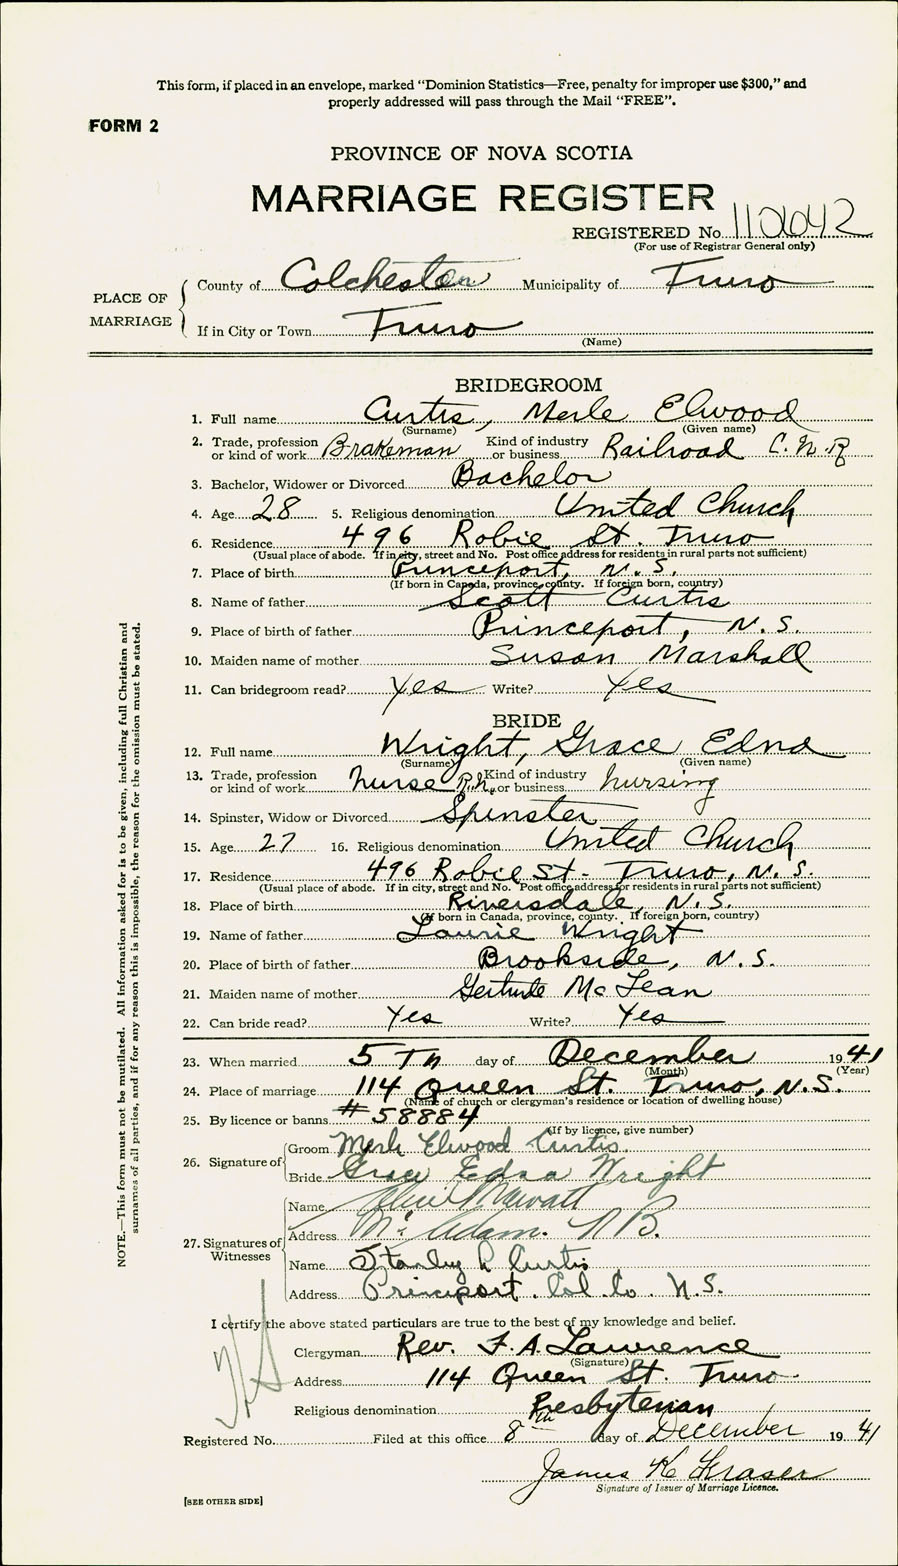 This form, if placed in an envelope, marked “Dominion Statistics—Free, penalty for improper use $300,” and
properly addressed will pass through the Mail “FREE”.
FORM 2
PROVINCE OF NOVA SCOTIA
MARRIAGE REGISTER
REGISTERED No. 110642
(For use of Registrar General only)
PLACE OF MARRIAGE
County of Colchester Municipality of Truro
If in City or Town Truro
(Name)
BRIDEGROOM
1. Full name Curtis, Merle Elwood
(Surname) (Given name)
2. Trade, profession or kind of work Brakeman Kind of industry or business Railroad C.N.R
3. Bachelor, Widower or Divorced Bachelor
4. Age 28 5. Religious denomination United Church
6. Residence 496 Robie St. Truro
(Usual place of abode. If in city, street and No. Post office address for residents in rural parts not sufficient)
7. Place of birth Princeport, N.S.
(If born in Canada, province, county. If foreign born, country)
8. Name of father Scott Curtis
9. Place of birth of father Princeport, N.S.
10. Maiden name of mother Susan Marshall
11. Can bridegroom read? Yes Write? Yes
BRIDE
12. Full name Wright, Grace Edna
(Surname) (Given name)
13. Trade, profession or kind of work Nurse R.N. Kind of industry or business Nursing
14. Spinster, Widow or Divorced Spinster
15. Age 27 16. Religious denomination United Church
17. Residence 496 Robie St - Truro, N.S.
(Usual place of abode. If in city, street and No. Post office address for residents in rural parts not sufficient)
18. Place of birth Riversdale, N.S.
(If born in Canada, province, county. If foreign born, country)
19. Name of father Laurie Wright
20. Place of birth of father Brookside, N.S.
21. Maiden name of mother Gertrude McLean
22. Can bride read? Yes Write? Yes
23. When married 5 Th day of December 1941
(Month) (Year)
24. Place of marriage 114 Queen St. Truro, N.S.
(Name of church or clergyman's residence or location of dwelling house)
25. By licence or banns #58884
(If by licence, give number)
26. Signature of Groom Merle Elwood Curtis
Bride Grace Edna Wright
27. Signatures of Witnesses
Name
Address Mc Adam. N B.
Name Stanley Curtis
Address Princeport. Col. Co. N.S.
I certify the above stated particulars are true to the best of my knowledge and belief.
Clergyman Rev. F. A. Lawrence
(Signature)
Address 114 Queen St. Truro
Religious denomination Presbyterian
Registered No. Filed at this office 8th day of December 1941
James K Fraser
Signature of Issuer of Marriage Licence.
[SEE OTHER SIDE]
NOTE.—This form must not be mutilated. All information asked for is to be given, including full Christian and
surnames of all parties, and if for any reason this is impossible, the reason for the omission must be stated.